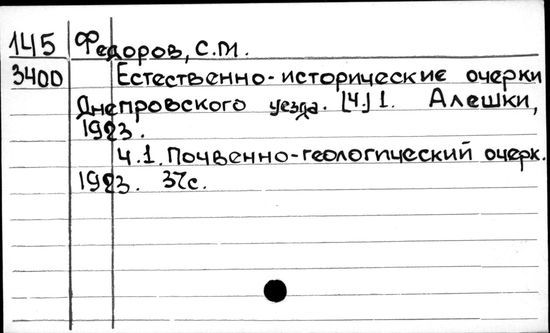 145 Федоров, С.М.
3400 Естественно-исторические очерки
Днепровского уезда. [Ч.] 1. Алешки,
1923.
Ч.1. Почвенно-геологический очерк.
1923. 37с.